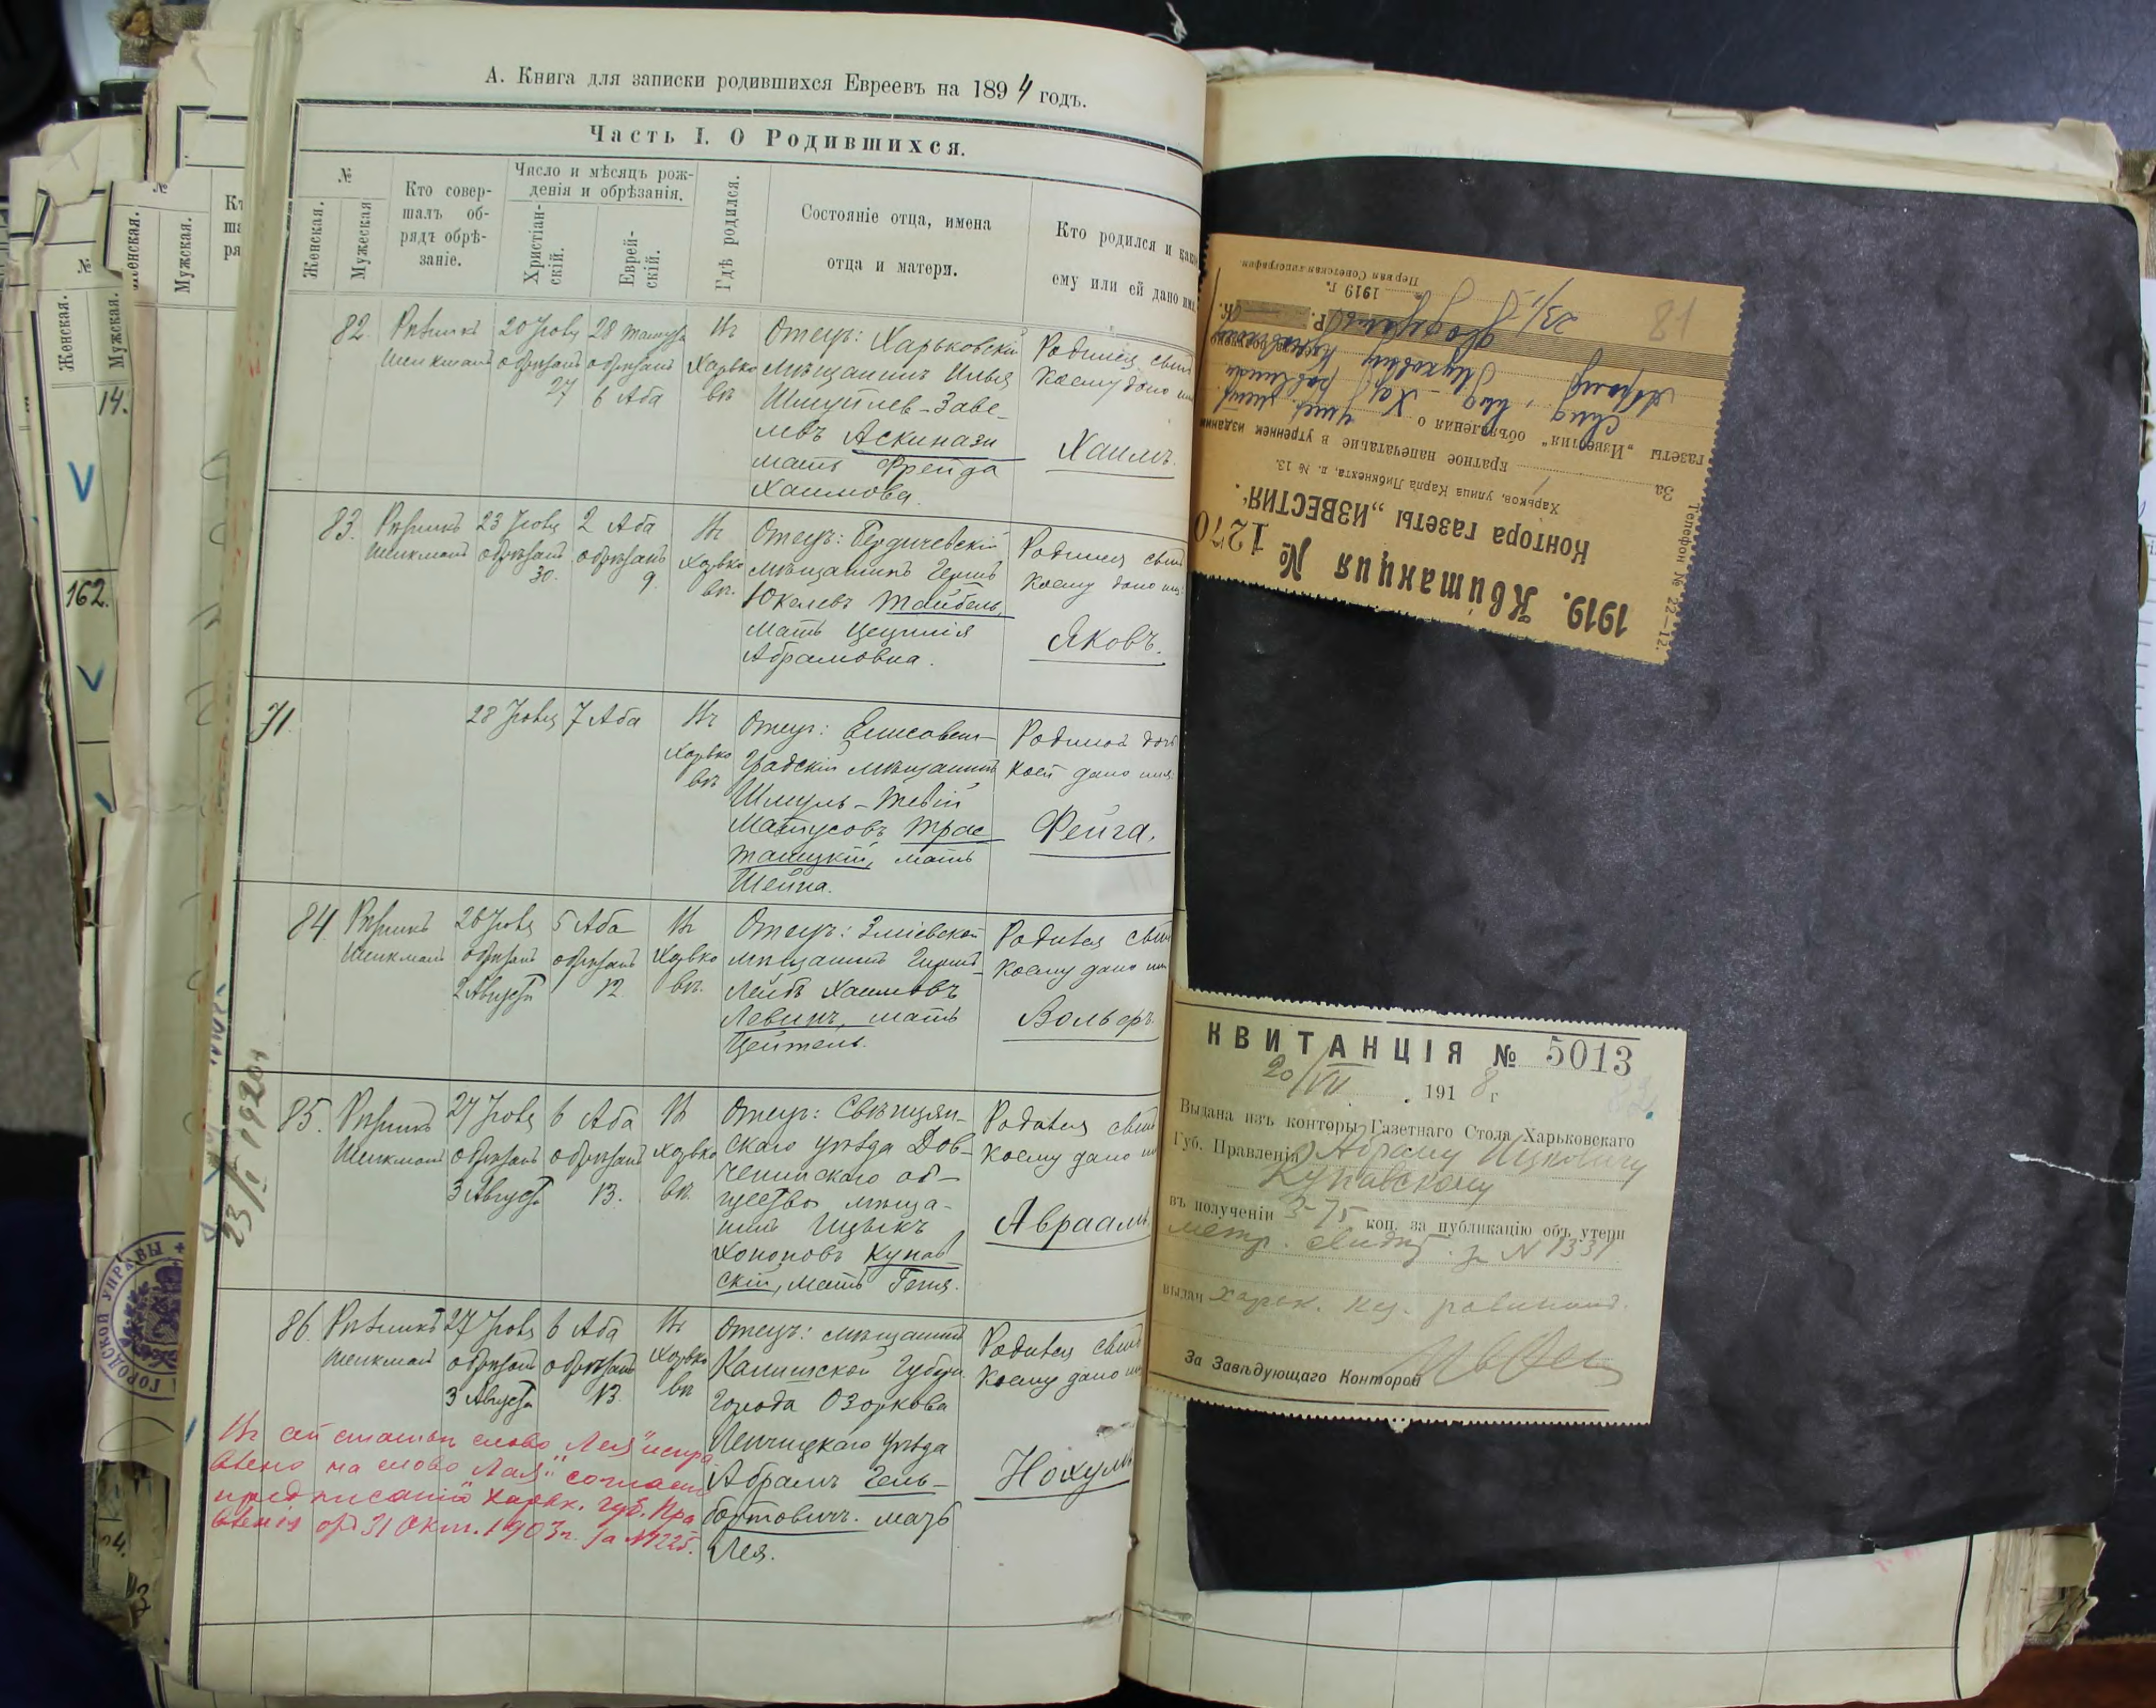 А. Книга для записки родившихся Евреевъ на 1894 годъ.
Часть I. О Родившихся.
№
Женская.
Мужеская
Кто совер-
шалъ об-
рядъ обрѣ-
заніе.
Число и мѣсяцъ рож-
денія и обрѣзанія.
Христіан-
скій.
Еврей-
скій.
Гдѣ родился.
Состояніе отца, имена
отца и матери.
Кто родился и како
ему или ей дано имя
82.
Рѣзникъ
Шикманъ
20 Іюля
обрѣзанъ
27
28 Тамуза
обрѣзанъ
6 Аба
Въ
Харько
вѣ
Отецъ: Харьковскій
мѣщанинъ Илья
Шмуйлев-Заве-
левъ Аскинази
мать Фрейда
Хаимова.
Родился сынъ
коему дано имя
Хаимъ.
83.
Рѣзникъ
Шикманъ
23 Іюля
обрѣзанъ
30.
2 Аба
обрѣзанъ
9.
Въ
Харько
вѣ.
Отецъ: Бердичевскій
мѣщанинъ Гершъ
Юкелевъ Тайбель,
мать Цецилія
Абрамовна.
Родился сынъ
коему дано имя
Яковъ.
71
28 Іюля
7 Аба
Въ
Харько
вѣ
Отецъ: Елисавет-
градскій мѣщанинъ
Шмуль-Тевій
Матусовъ Трас
тянецкій, мать
Шейна.
Родилась дочь
коей дано имя
Фейга.
84
Рѣзникъ
Шикманъ
26 Іюля
обрѣзанъ
2 Августа
5 Аба
обрѣзанъ
12
Въ
Харько
вѣ.
Отецъ: Зміевской
мѣщанинъ Гиршъ-
Лейбъ Хаимовъ
Левинъ, мать
Цейтель.
Родился сынъ
коему дано имя
Вольфъ.
85.
Рѣзникъ
Шикманъ
27 Іюля
обрѣзанъ
3 Августа
6 Аба
обрѣзанъ
13.
Въ
Харько
вѣ.
Отецъ: Свѣнцян-
скаго уѣзда
об-
щества мѣща-
нинъ Ицыкъ
Хононовъ Купав
скій, мать Геня.
Родился сынъ
коему дано имя
Авраамъ.
86.
Рѣзникъ
Шикманъ
27 Іюля
обрѣзанъ
3 Августа
6 Аба
обрѣзанъ
13.
Въ
Харько
вѣ
Отецъ: мѣщанинъ
Калишской Губерн.
города Озоркова
Ленчицкаго уѣзда
Абрамъ Гель-
бортовичъ. мать
Лея.
Родился сынъ
коему дано имя
Нохумъ
Въ сей статьѣ слово "Лея" испра
влено на слово "Лая" согласно
предписанію Харьк. губ. Пра
вленія отъ 31 Окт. 1903 г. за №
23/I 1920
ГОРОДСКОЙ УПРАВЫ
№
Женская.
Мужская.
14.
162.
1919. Квитанция № 1270
Контора газеты „ИЗВЕСТИЯ“.
Харьков, улица Карла Либкнехта, д. № 13.
Телефон № 22—12.
За кратное напечатание в утреннем издании
газеты „Известия“ объявления о
23/I
1919 г.
Первая Советская типография.
81
КВИТАНЦІЯ № 5013
20/VII 1918 г
Выдана изъ конторы Газетнаго Стола Харьковскаго
Губ. Правленія Абраму Ицковичу
Купавскому
въ полученіи 3-75 коп. за публикацію объ утери
метр. свид. за № 1331
выдан харьк. каз. раввином.
За Завѣдующаго Конторой